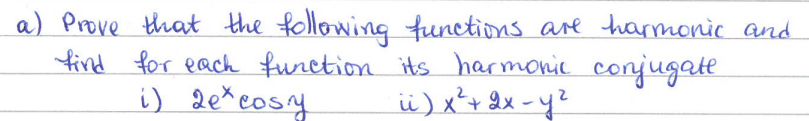 a) Prove that the following functions are harmonic and
find for each function its harmonic conjugate
i) 2eˣcosy ii) x²+2x-y²